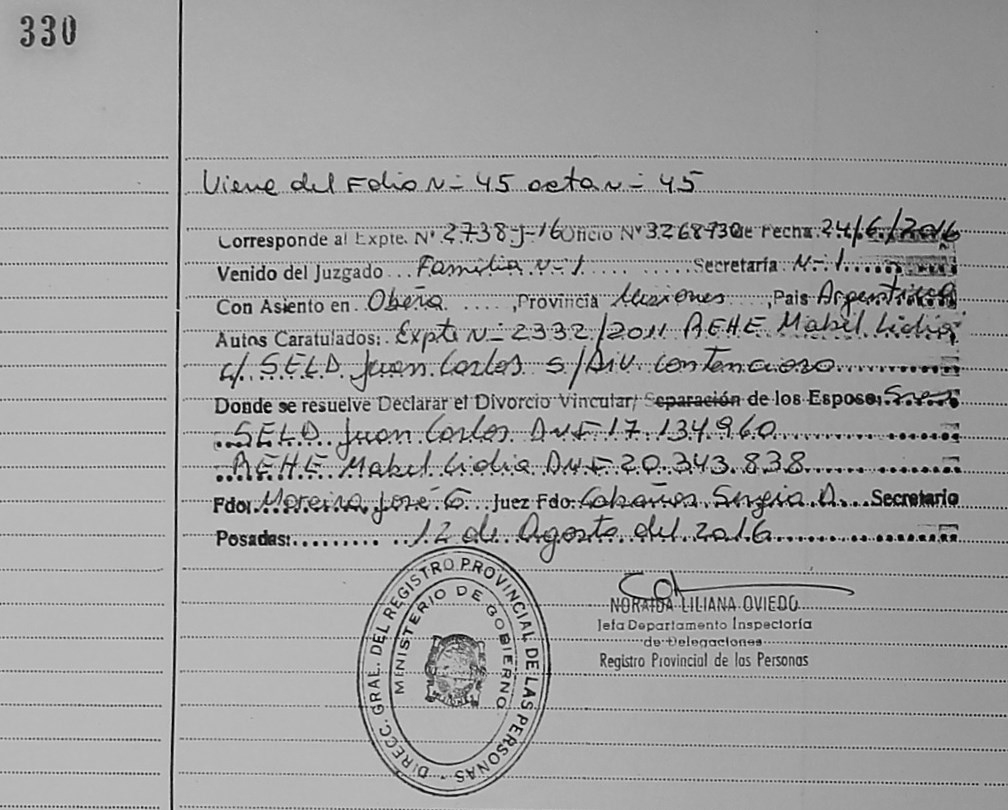 330
Viene del Folio N- 45 acta N- 45
Corresponde al Expte. Nº 2738-J-16 Oficio Nº 3268930 de Fecha 24/6/2016
Venido del Juzgado Familia N-1 Secretaría N-1
Con Asiento en Obera, Provincia Misiones, Pais Argentina
Autos Caratulados: Expte N- 2332/2011 AEHE Mabel Lidia
c/ SELD Juan Carlos s/ Div. contencioso
Donde se resuelve Declarar el Divorcio Vincular/ Separación de los Esposos Sres
SELD Juan Carlos DNI 17.134.960
AEHE Mabel Lidia DNI 20.343.838
Fdo: Moreira José G. Juez Fdo: Sergia A. Secretario
Posadas: 12 de Agosto del 2016
NORAIDA LILIANA OVIEDO
Jefa Departamento Inspectoría
de Delegaciones
Registro Provincial de las Personas
DIRECC. GRAL. DEL REGISTRO PROVINCIAL DE LAS PERSONAS
MINISTERIO DE GOBIERNO